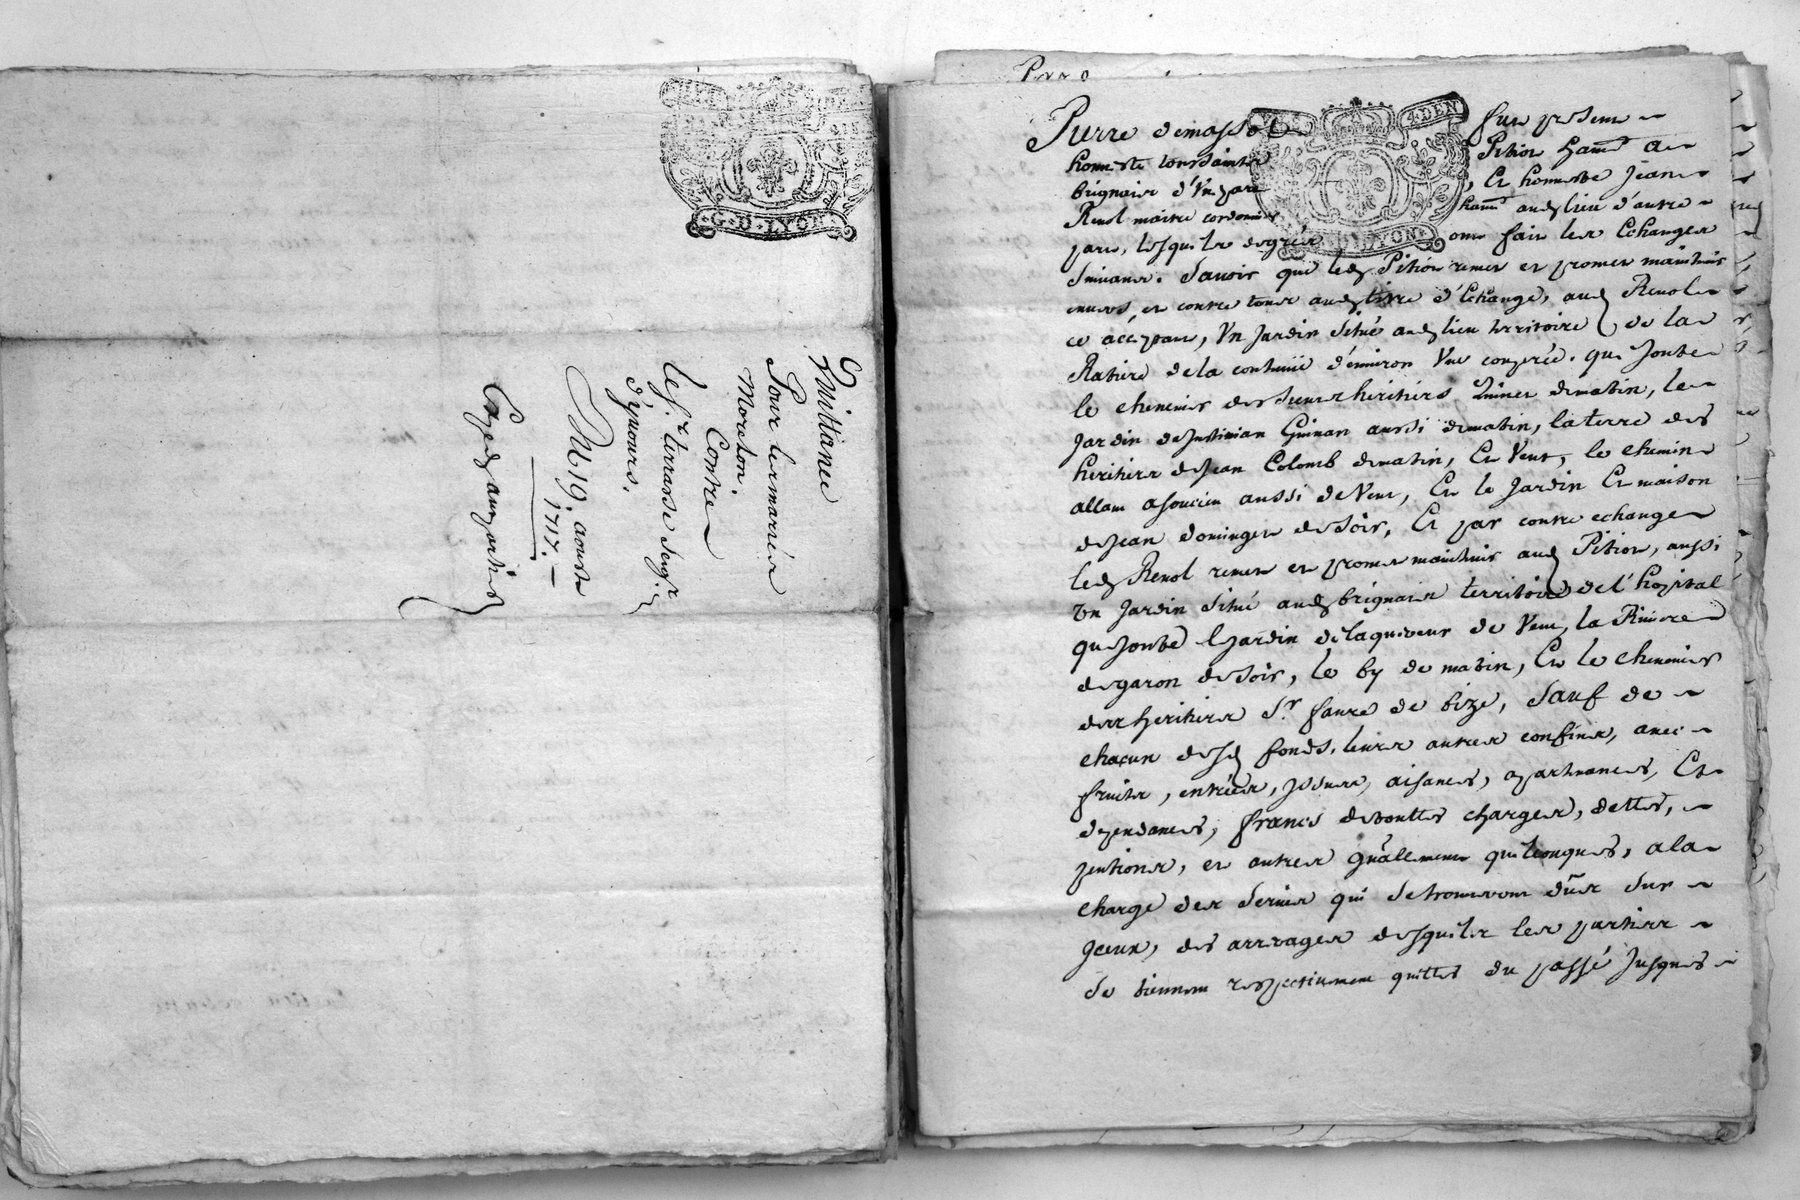 G·D·LYON
Quittance
Pour les mariés
Moreton.
Contre
le Sr. terrasse Seigr
d'yvours.
Du 19. aoust
1717.
Exped aux parties
Pierre demassol furent presents
honneste Pition habt. a
brignais d'Une part, Et honneste Jean
Renol maitre cordonnier habt. aud lieu d'autre
part, lesquels de gré ont fait les Echanges
suivans. Savoir que led Pition remet et promet maintenir
envers et contre tous aud titre d'Echange, aud Renol
ce acceptant, Un Jardin Situé aud lieu territoire de la
Ratiere de la contenue d'environ Une couperée. qui Joute
le chemin des sieurs heritiers de matin, le
Jardin de Justinian Guinan aussi de matin, la terre des
heritiers de Jean Colomb de matin, Et Vent, le chemin
allant a soucieu aussi de Vent, Et le Jardin Et maison
de Jean dominget de Soir, Et par contre echange
led Renol remet et promet maintenir aud Pition, aussi
Un Jardin Situé aud brignais territoire de l'hopital
qui Joute le Jardin de de Vent, la Riviere
de garon de Soir, le by de matin, Et le chemin
des heritiers Sr. faure de bize, Sauf de
chacun desd fonds, leurs autres confins, avec
fruits, entrées, Issues, aisances, apartenances, Et
dependances, francs de touttes charges, dettes,
pentions, et autres gñalement quelconques, a la
charge des servis qui se trouveront dûs sur
Iceux, des arrerages desquels les parties
se tiennent respectivement quittes du passé Jusques